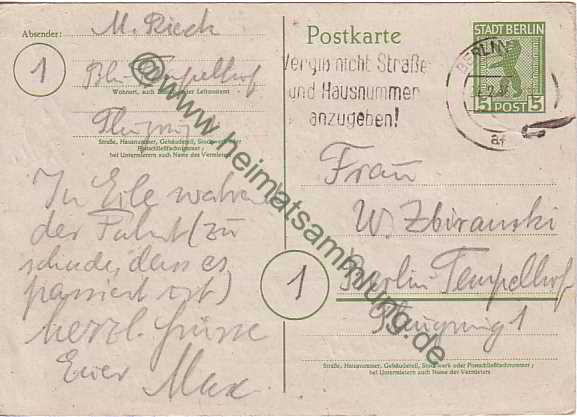 Absender:
M. Rieck
1
Bln Tempelhof
Wohnort, auch Zustell- oder Leitpostamt
Straße, Hausnummer, Gebäudeteil, Stockwerk oder
Postschließfachnummer;
bei Untermietern auch Name des Vermieters
In Eile während
der Fahrt (zu
schade, dass es
passiert ist)
herzl. Grüsse
Euer Max
Postkarte
BERLIN
Vergiß nicht Straße
und Hausnummer
anzugeben!
STADT BERLIN
5 POST 5
Frau
W. Zbiranski
1
Berlin-Tempelhof
1
Straße, Hausnummer, Gebäudeteil, Stockwerk oder Postschließfachnummer;
bei Untermietern auch Name des Vermieters
@www.heimatsammlung.de